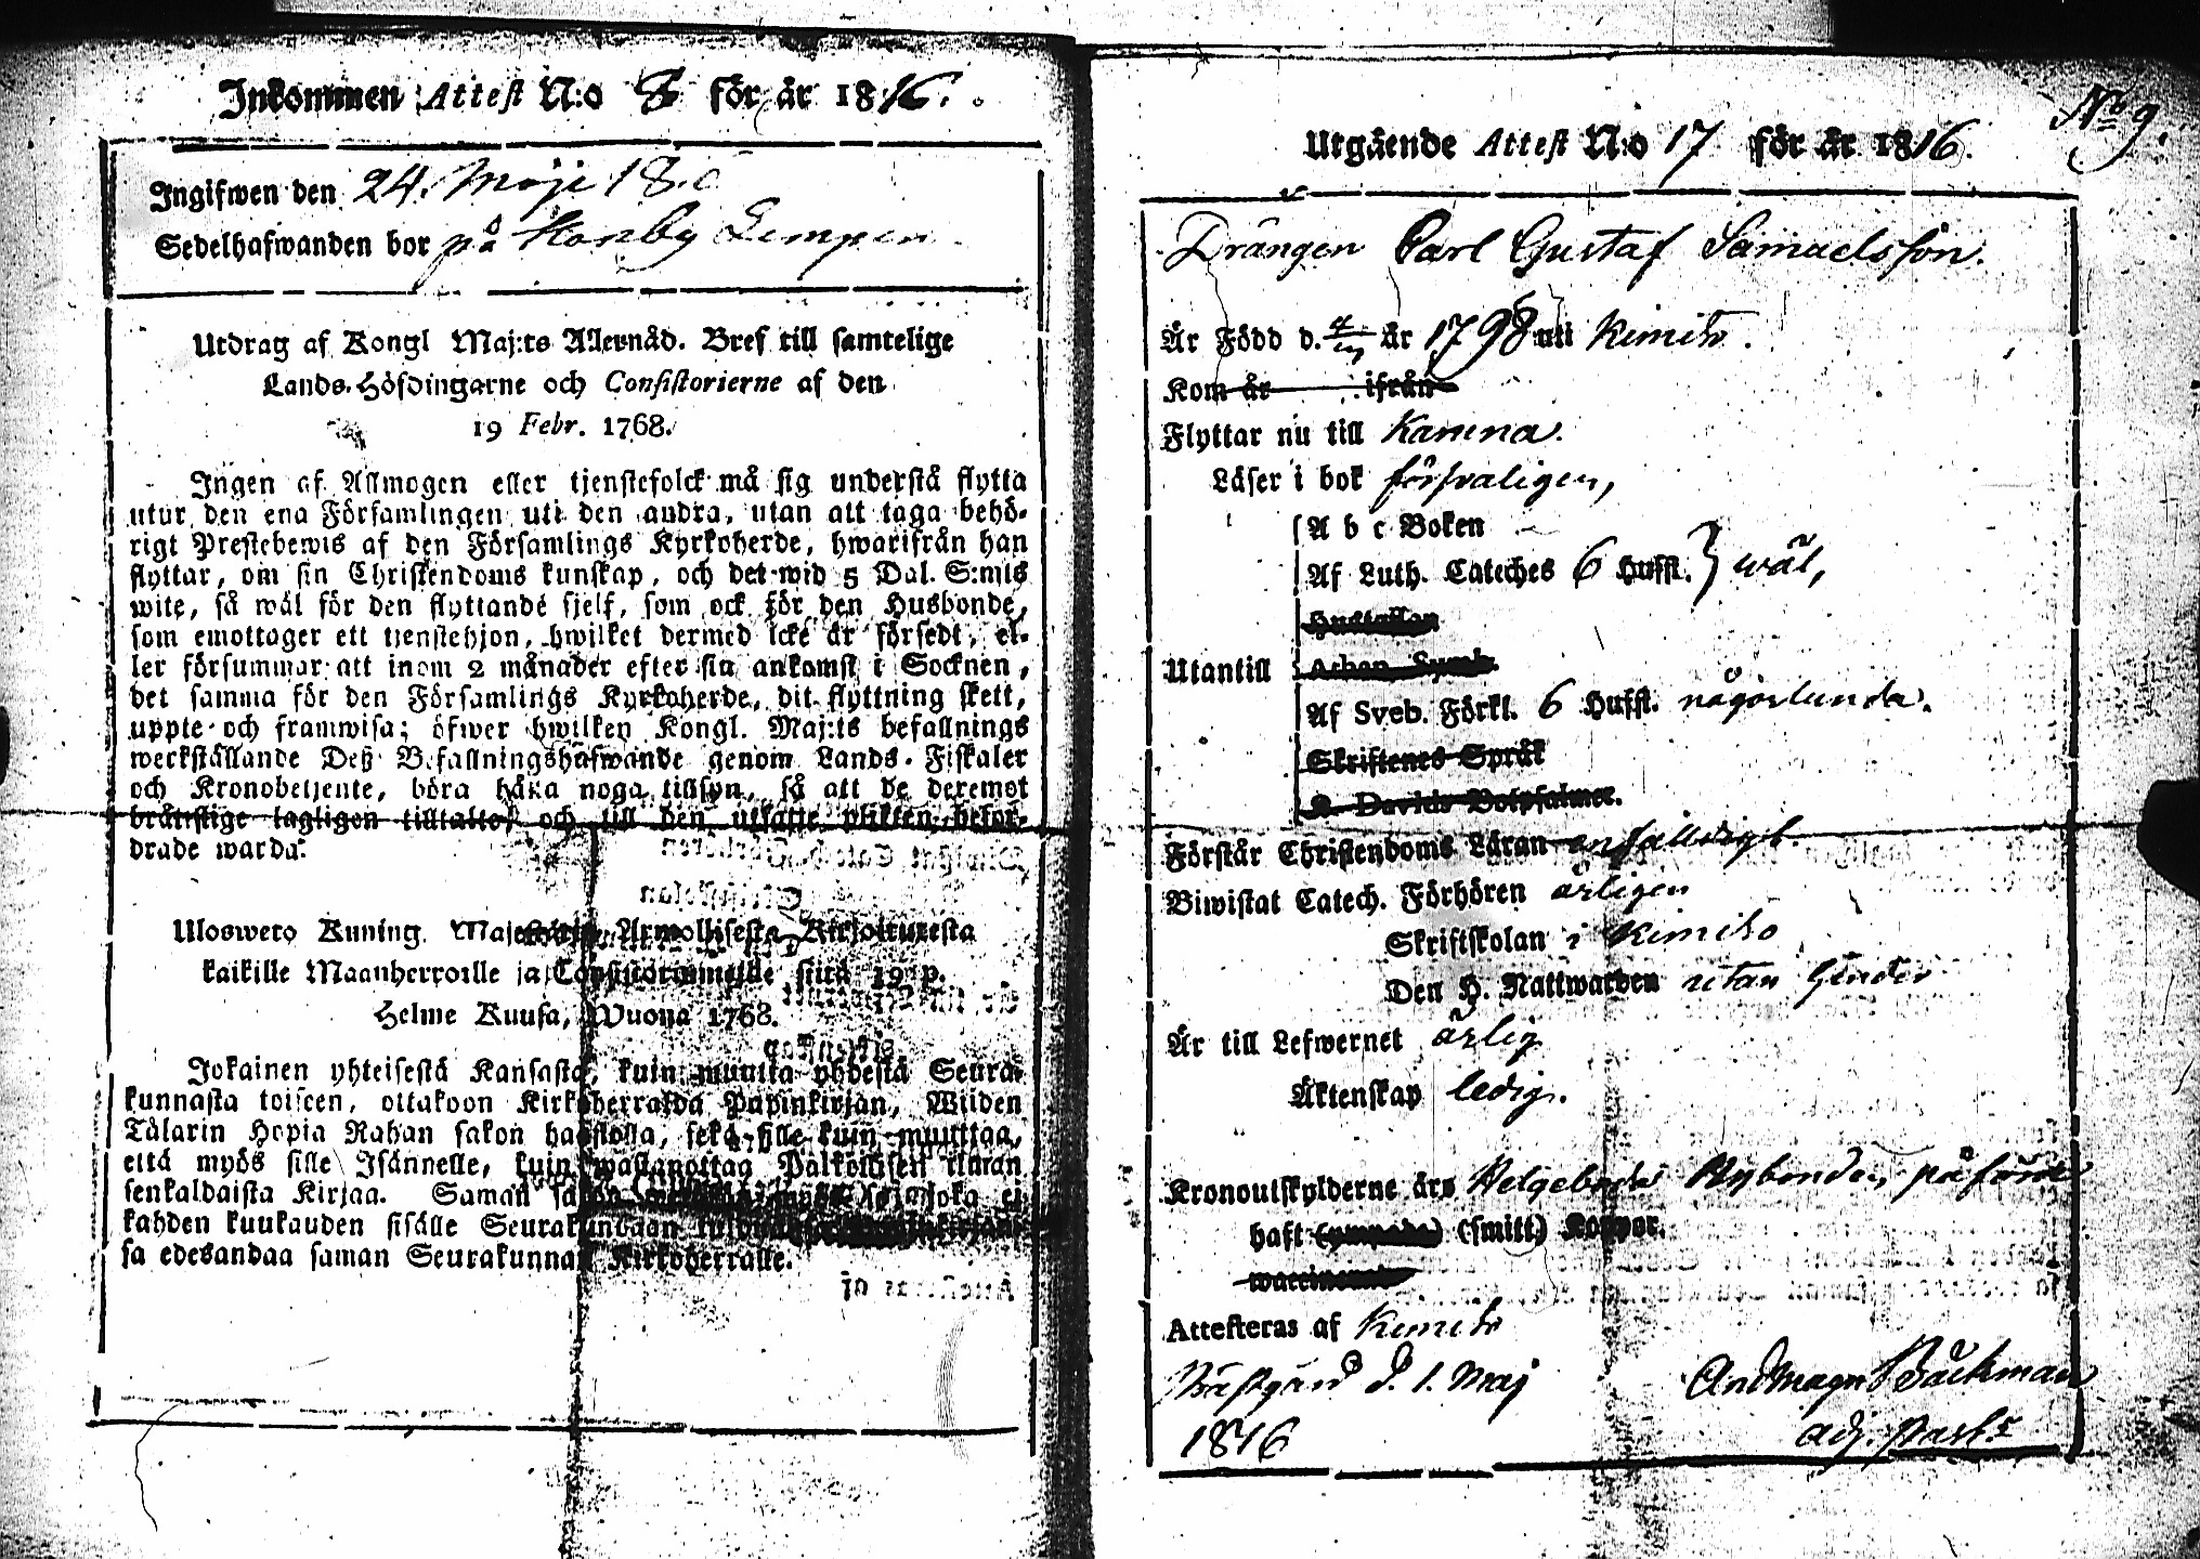 Inkommen Attest N:o 8 för år 1816.
Ingifwen den 24. Maji 18
Sedelhafwanden bor på
Utdrag af Kongl Maj:ts Allernåd. Bref till samtelige
Lands-Höfdingarne och Consistorierne af den
19 Febr. 1768.
Ingen af Allmogen eller tjenstefolck må sig understå flytta
utur den ena Församlingen uti den andra, utan att taga behö-
rigt Prestebewis af den Församlings Kyrkoherde, hwarifrån han
flyttar, om sin Christendoms kunskap, och det wid 5 Dal. S:mts
wite, så wäl för den flyttande sjelf, som ock för den Husbonde,
som emottager ett tjenstehjon, hwilket dermed icke är försedt, el-
ler försummar att inom 2 månader efter sin ankomst i Socknen,
det samma för den Församlings Kyrkoherde, dit flyttning skett,
uppte och framwisa; öfwer hwilken Kongl. Maj:ts befallnings
werkställande Deß Befallningshafwande genom Lands-Fiskaler
och Kronobetjente, böra hafwa noga tillsyn, så att de deremot
bråttslige lagligen tilltalte, och till den utsatte plikten befor-
drade warda.
Ulosweto Kuning. Majestätin Armollisesta Kirjoituxesta
kaikille Maanherroille ja Consistoriumeille siitä 19 p.
Helme Kuusa, Wuona 1768.
Jokainen yhteisestä Kansasta, kuin muutta yhdestä Seura-
kunnasta toiseen, ottakoon Kirkoherralda Papinkirjan, Wiiden
Talarin Hopia Rahan sakon haastolla, sekä sille kuin muuttaa,
että myös sille Isännelle, kuin wastanottaa Palkollisen ilman
senkaldaista Kirjaa. Saman
kahden kuukauden sisälle Seurakundaan
sa edesandaa saman Seurakunnan Kirkoherralle.
No 9.
Utgående Attest N:o 17 för år 1816.
Drängen Carl Gustaf Samuelsson.
Är Född d. år 1798 uti Kimito.
Kom år ifrån
Flyttar nu till Karuna.
Läser i bok försvaligen,
A b c Boken
Af Luth. Cateches 6 Hufst. } wäl,
Hustaflan
Utantill Athan. Symb.
Af Sveb. Förkl. 6 Hufst. någorlunda.
Skriftenes Språk
K. Davids Botpsalmer.
Förstår Christendoms Läran enfalldigt.
Biwistat Catech. Förhören årligen
Skriftskolan i Kimito
Den H. Nattwarden utan hinder
Är till Lefwernet ärlig
Äktenskap ledig.
Kronoutskylderne äro Helgeboda Nybondes påförde
haft (ympade) (smitt) Koppor.
waccinerad
Attesteras af Kimito
Prästgård d. 1. Maj And Magn Bäckman
1816 adj. Past:s